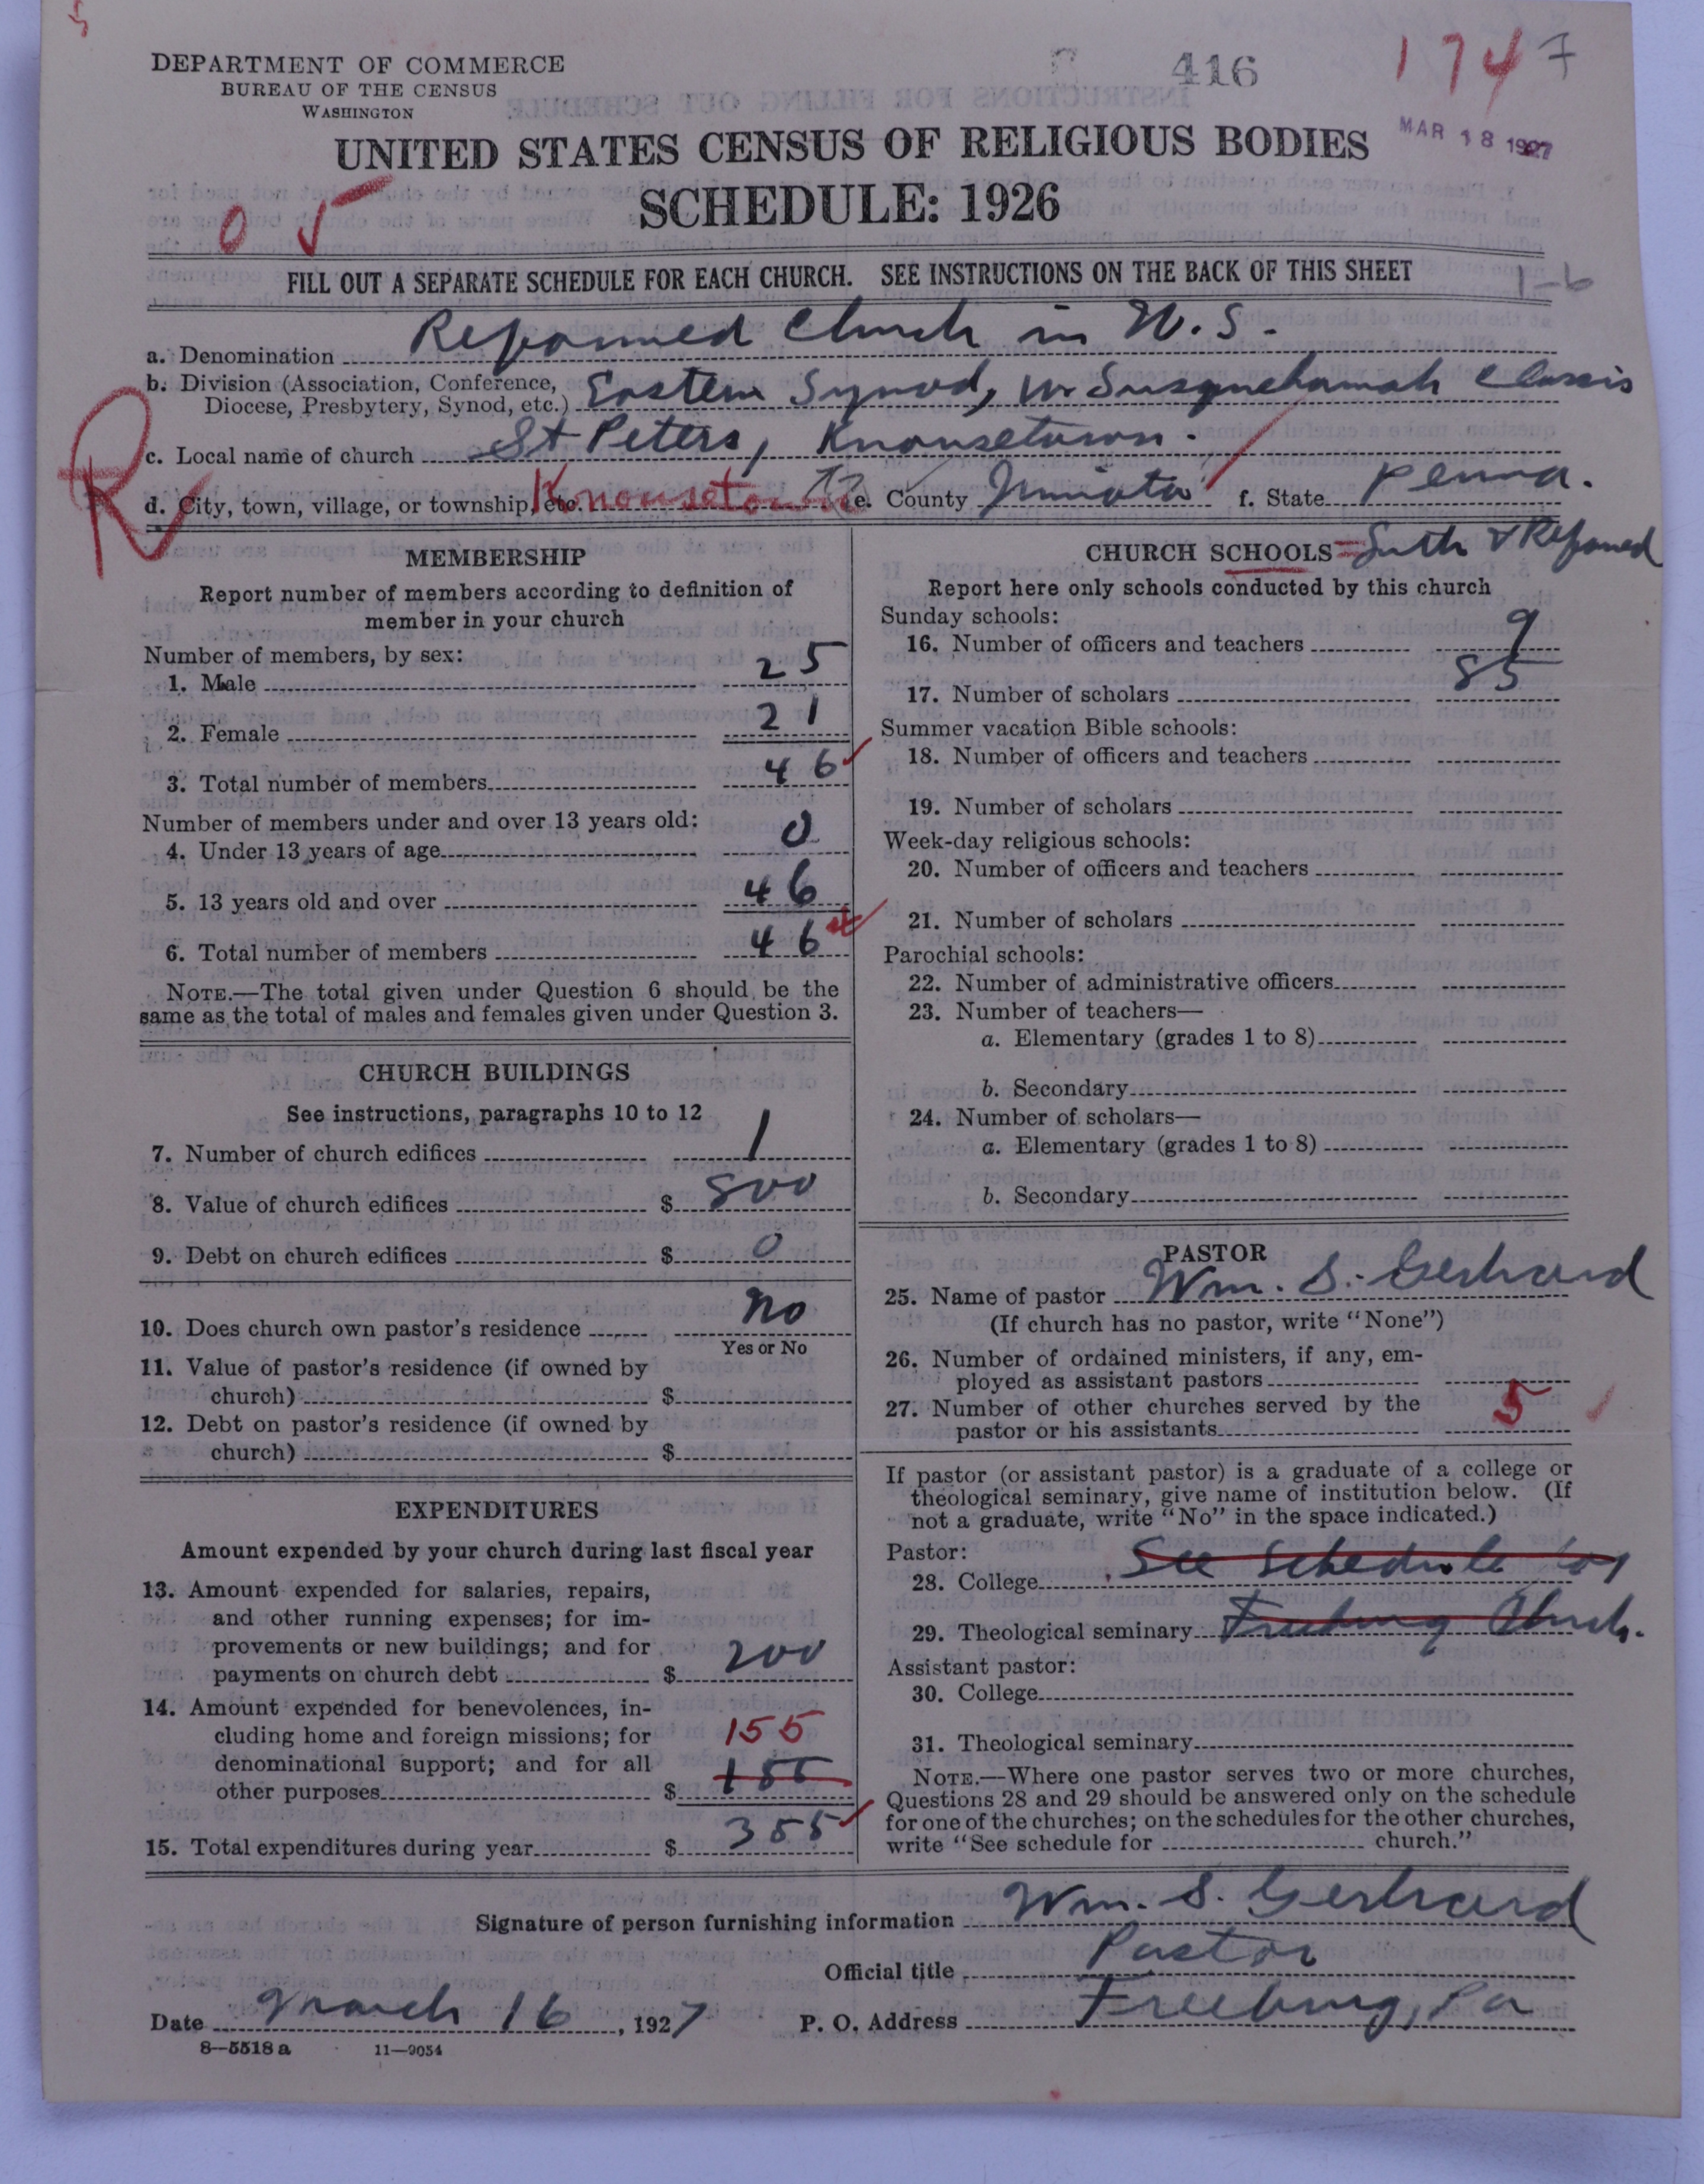 DEPARTMENT OF COMMERCE
BUREAU OF THE CENSUS
WASHINGTON
416
1747
MAR 18 1927
UNITED STATES CENSUS OF RELIGIOUS BODIES
SCHEDULE: 1926
0 5
FILL OUT A SEPARATE SCHEDULE FOR EACH CHURCH. SEE INSTRUCTIONS ON THE BACK OF THIS SHEET
1-6
a. Denomination Reformed Church in U. S.
b. Division (Association, Conference, Diocese, Presbytery, Synod, etc.) Eastern Synod, W. Susquehannah Classis
c. Local name of church St Peters, Knousetown.
R
d. City, town, village, or township, etc. Knousetown e. County Juniata f. State Penna.
MEMBERSHIP
Report number of members according to definition of
member in your church
Number of members, by sex:
1. Male 25
2. Female 21
3. Total number of members 46
Number of members under and over 13 years old:
4. Under 13 years of age 0
5. 13 years old and over 46
6. Total number of members 46
NOTE.—The total given under Question 6 should be the
same as the total of males and females given under Question 3.
CHURCH BUILDINGS
See instructions, paragraphs 10 to 12
7. Number of church edifices 1
8. Value of church edifices $ 800
9. Debt on church edifices $ 0
10. Does church own pastor's residence No
Yes or No
11. Value of pastor's residence (if owned by
church) $
12. Debt on pastor's residence (if owned by
church) $
EXPENDITURES
Amount expended by your church during last fiscal year
13. Amount expended for salaries, repairs,
and other running expenses; for im-
provements or new buildings; and for
payments on church debt $ 200
14. Amount expended for benevolences, in-
cluding home and foreign missions; for 155
denominational support; and for all
other purposes $ 155
15. Total expenditures during year $ 355
CHURCH SCHOOLS = Luth & Reformed
Report here only schools conducted by this church
Sunday schools:
16. Number of officers and teachers 9
17. Number of scholars 85
Summer vacation Bible schools:
18. Number of officers and teachers
19. Number of scholars
Week-day religious schools:
20. Number of officers and teachers
21. Number of scholars
Parochial schools:
22. Number of administrative officers
23. Number of teachers—
a. Elementary (grades 1 to 8)
b. Secondary
24. Number of scholars—
a. Elementary (grades 1 to 8)
b. Secondary
PASTOR
25. Name of pastor Wm. S. Gerhard
(If church has no pastor, write "None")
26. Number of ordained ministers, if any, em-
ployed as assistant pastors
27. Number of other churches served by the
pastor or his assistants 5
If pastor (or assistant pastor) is a graduate of a college or
theological seminary, give name of institution below. (If
not a graduate, write "No" in the space indicated.)
Pastor:
28. College See Schedule for
29. Theological seminary Freeburg Church.
Assistant pastor:
30. College
31. Theological seminary
NOTE.—Where one pastor serves two or more churches,
Questions 28 and 29 should be answered only on the schedule
for one of the churches; on the schedules for the other churches,
write "See schedule for church."
Signature of person furnishing information Wm. S. Gerhard
Official title Pastor
Date March 16, 1927 P. O. Address Freeburg, Pa
8—5518 a 11—9054